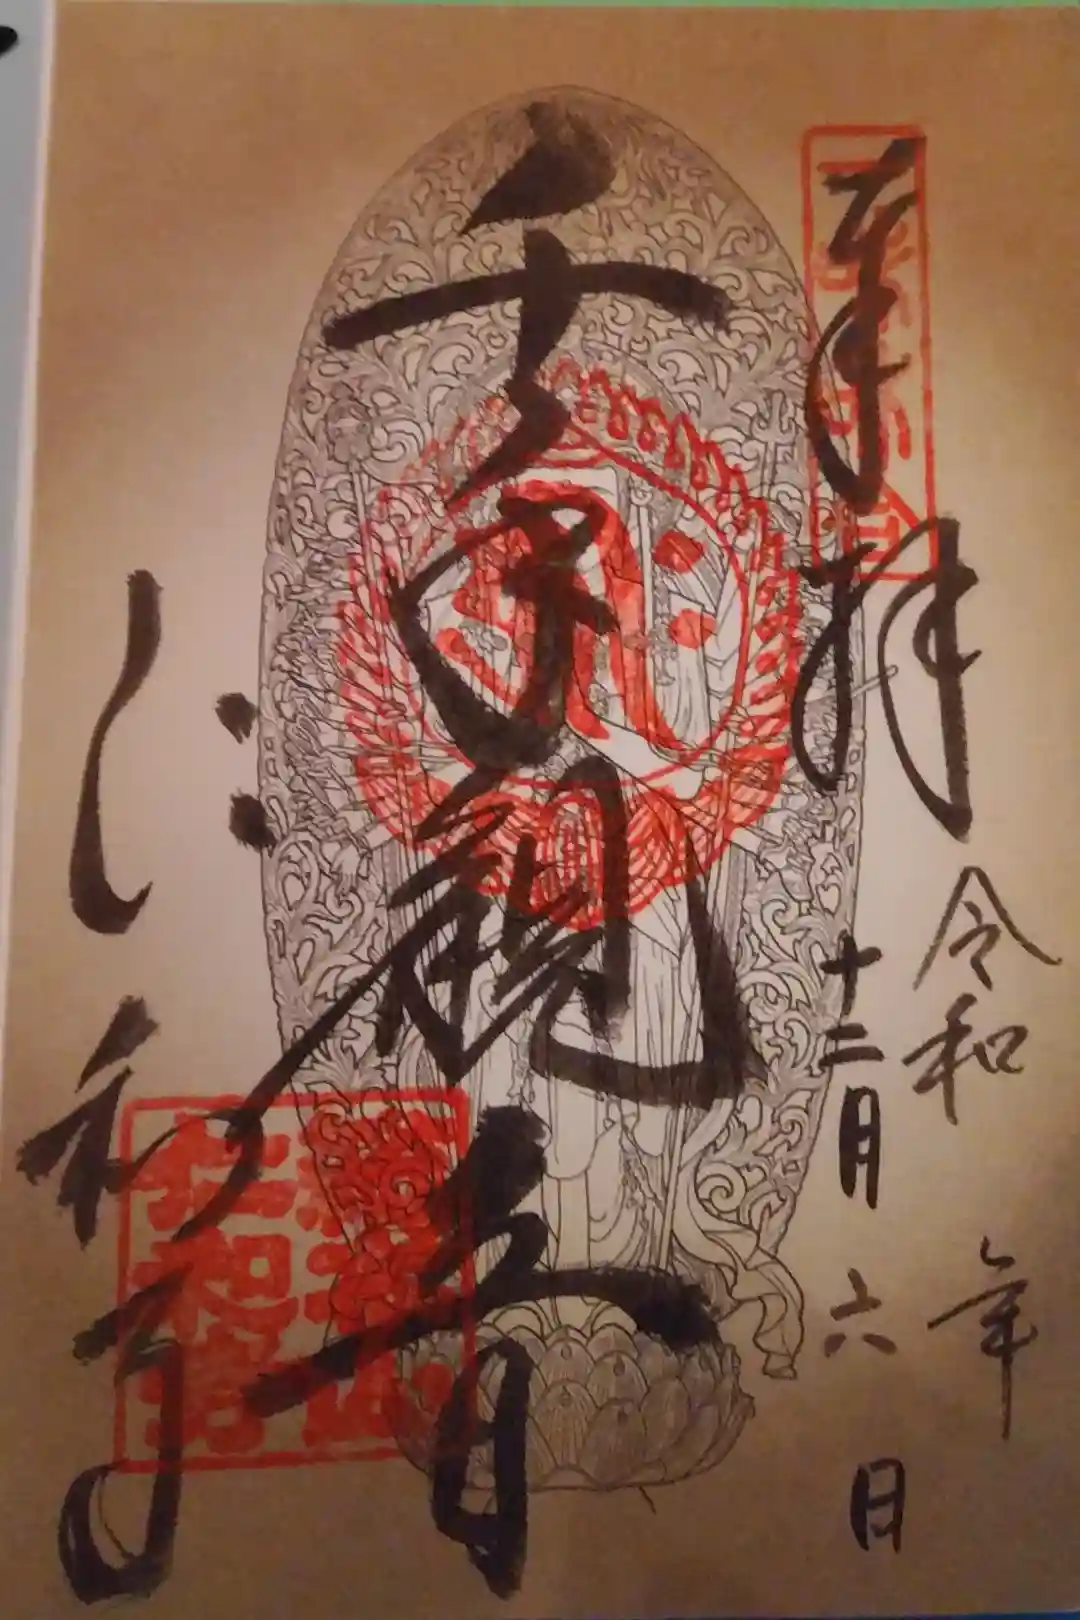 奉拝
令和 年
十二月六日
千手観音
仁和寺